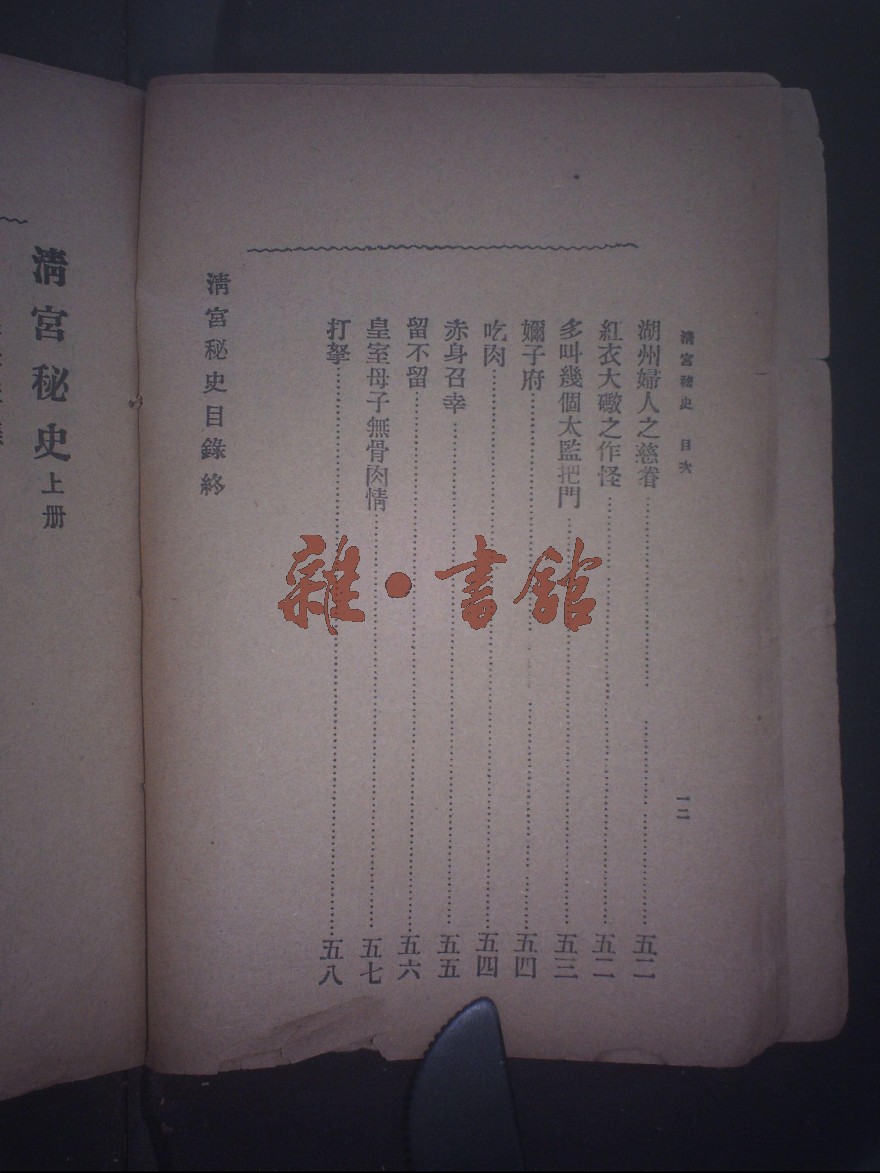 清宮秘史　目次
一二
湖州婦人之慈眷…………五二
紅衣大礮之作怪…………五二
多叫幾個太監把門…………五三
嬭子府…………五四
吃肉…………五四
赤身召幸…………五五
留不留…………五六
皇室母子無骨肉情…………五七
打拏…………五八
清宮秘史目錄終
雜·書館
清宮秘史上册